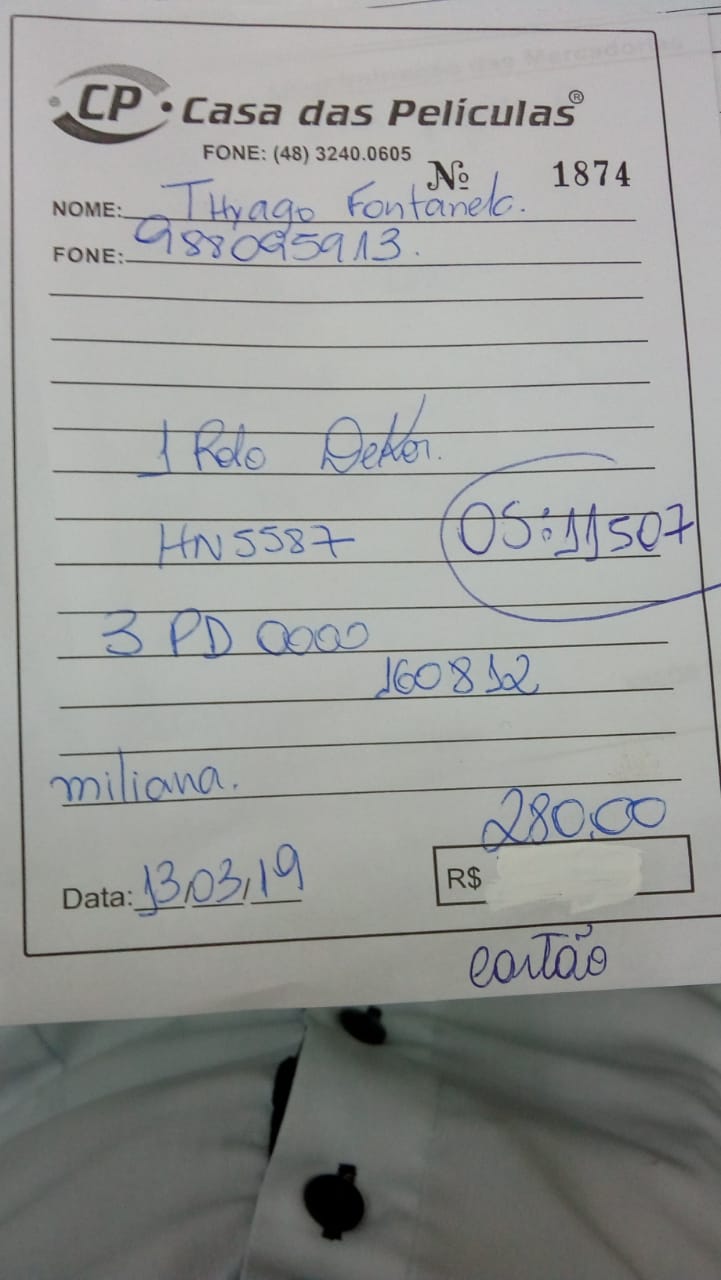 CP • Casa das Películas®
FONE: (48) 3240.0605
Nº 1874
NOME: Thyago Fontanela.
FONE: 988095913.
1 Rolo Dekor.
HN5587
OS:11507
3 PD 0000
160812
miliana.
280,00
Data: 13,03,19
R$
cartão